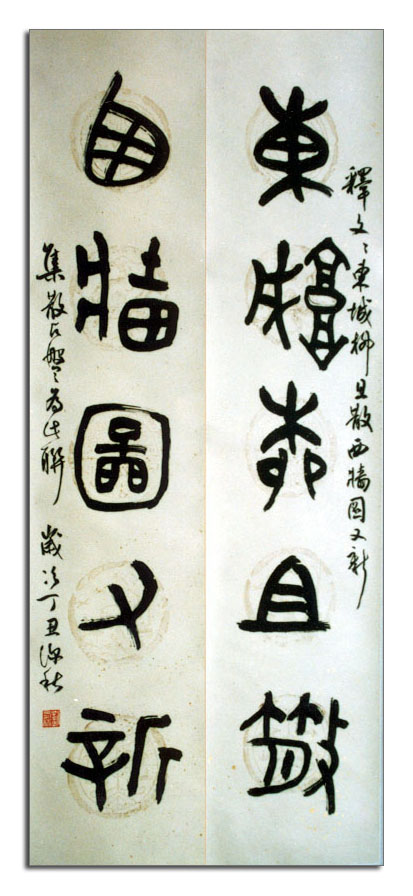 釋文：東城柳且散西牆圖又新
東城柳且散
西牆圖又新
集散氏盤為此聯 歲次丁丑深秋